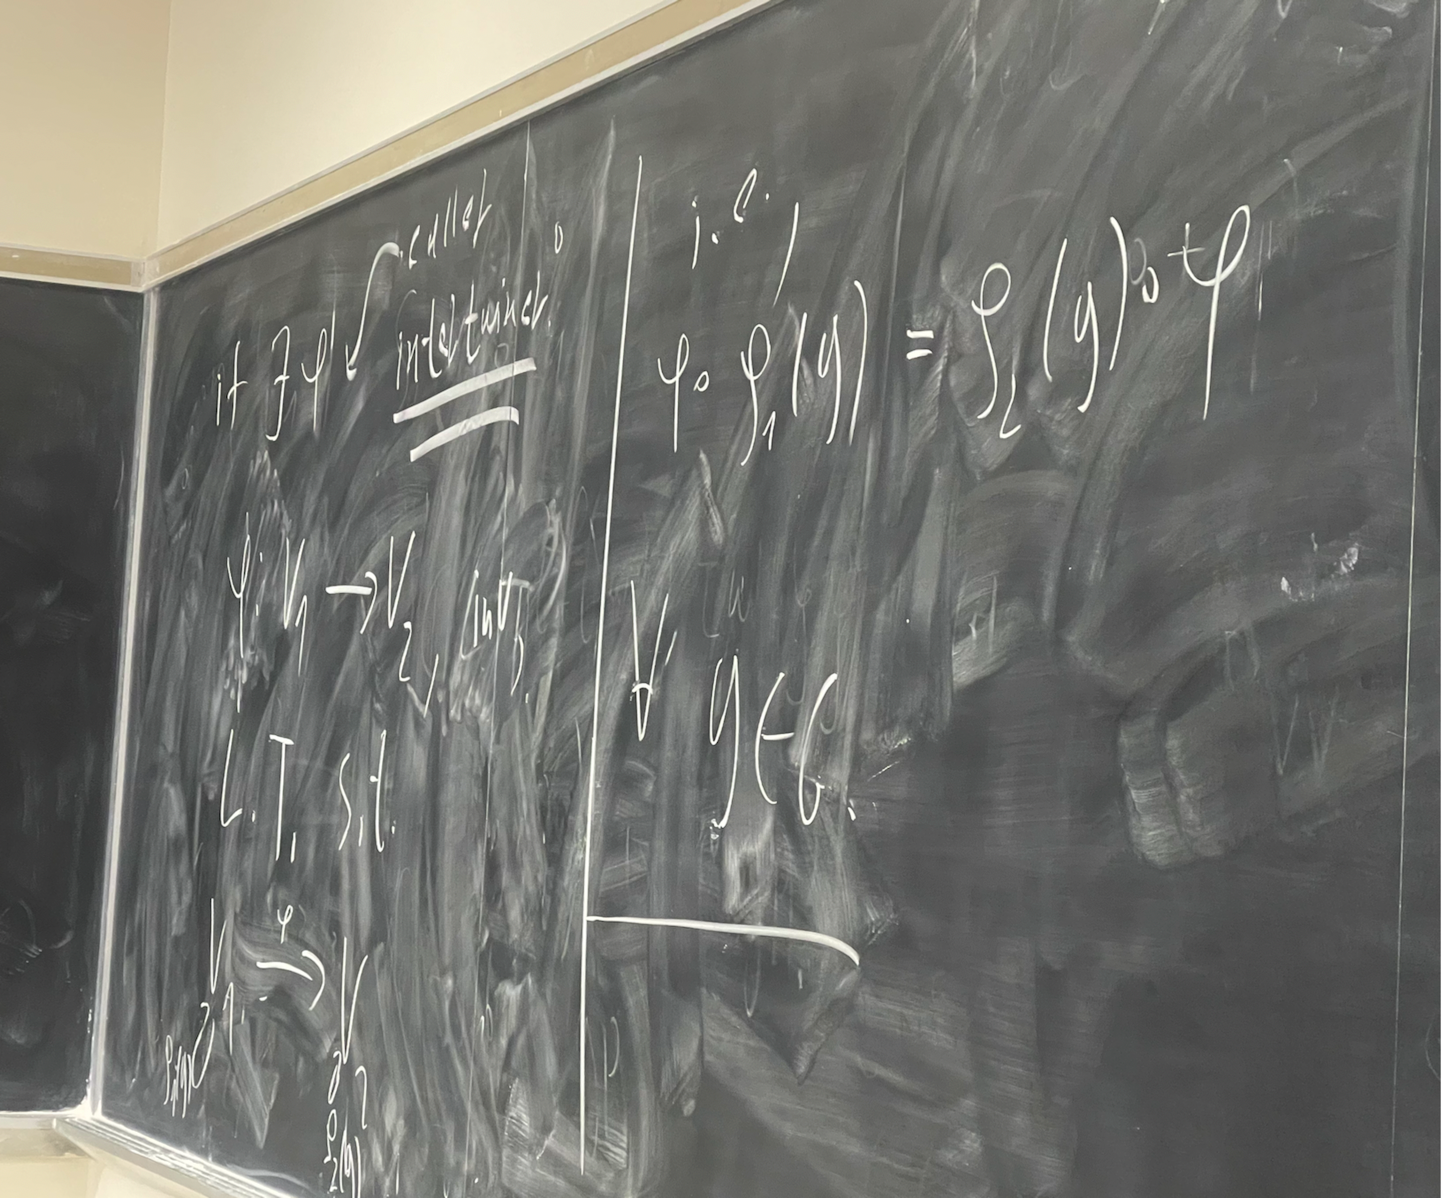 called
if ∃ φ intertwiner.
φ: V₁ → V₂, inv.
L.T. s.t.
V₁ φ→ V₂
ρ₁(g)
ρ₂(g)
i.e.,
φ∘ρ₁(g) = ρ₂(g)∘φ
∀ g∈G.